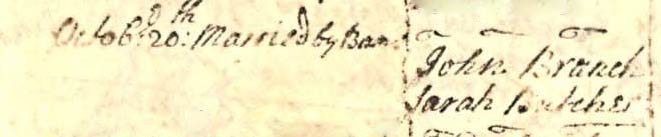 Octobr 20th: Married by Ban
John Branch
Sarah Butcher